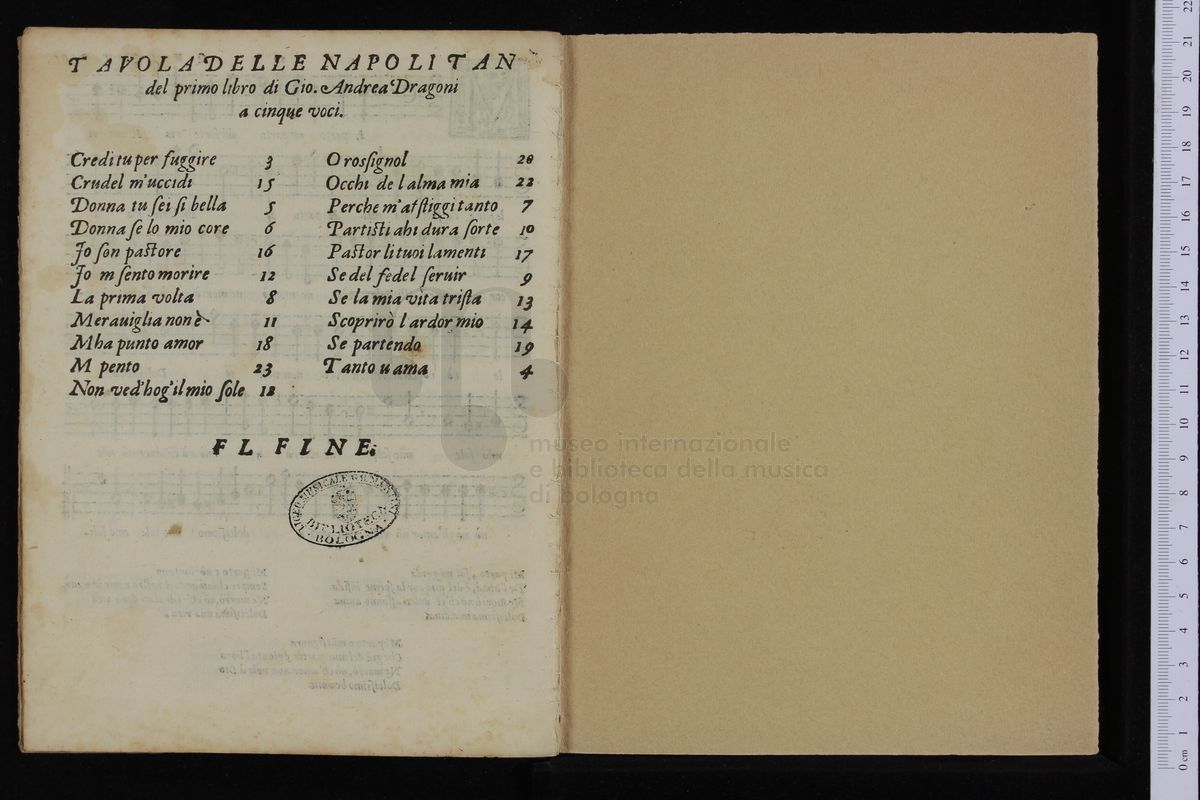 TAVOLA DELLE NAPOLITAN
del primo libro di Gio. Andrea Dragoni
a cinque voci.
Credi tu per fuggire 3
Crudel m'uccidi 15
Donna tu sei si bella 5
Donna se lo mio core 6
Jo son pastore 16
Jo m sento morire 12
La prima volta 8
Merauiglia non è 11
Mha punto amor 18
M pento 23
Non ved'hog'il mio sole 12
O rossignol 20
Occhi de l alma mia 22
Perche m'affliggi tanto 7
Partisti ahi dura sorte 10
Pastor li tuoi lamenti 17
Se del fedel seruir 9
Se la mia vita trista 13
Scoprirò l ardor mio 14
Se partendo 19
Tanto u ama 4
FL FINE.
LICEO MUSICALE
BIBLIOTECA
BOLOGNA
museo internazionale
e biblioteca della musica
di bologna
0 cm 1 2 3 4 5 6 7 8 9 10 11 12 13 14 15 16 17 18 19 20 21 22